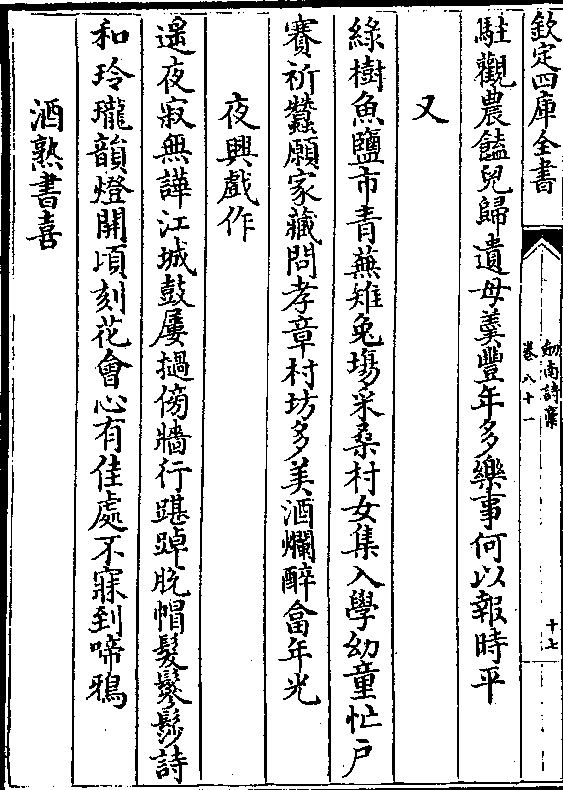 欽定四庫全書
劍南詩藁
卷八十一
十七
駐觀農饁兒歸遺母羹豐年多樂事何以報時平
又
綠樹魚鹽市青蕪雉兔場采桑村女集入學幼童忙戶
賽祈蠶願家藏問孝章村坊多美酒爛醉畣年光
夜興戲作
遥夜寂無譁江城鼓屢撾傍牆行踸踔脫帽髮鬖髿詩
和玲瓏韻燈開頃刻花會心有佳處不寐到啼鴉
酒熟書喜